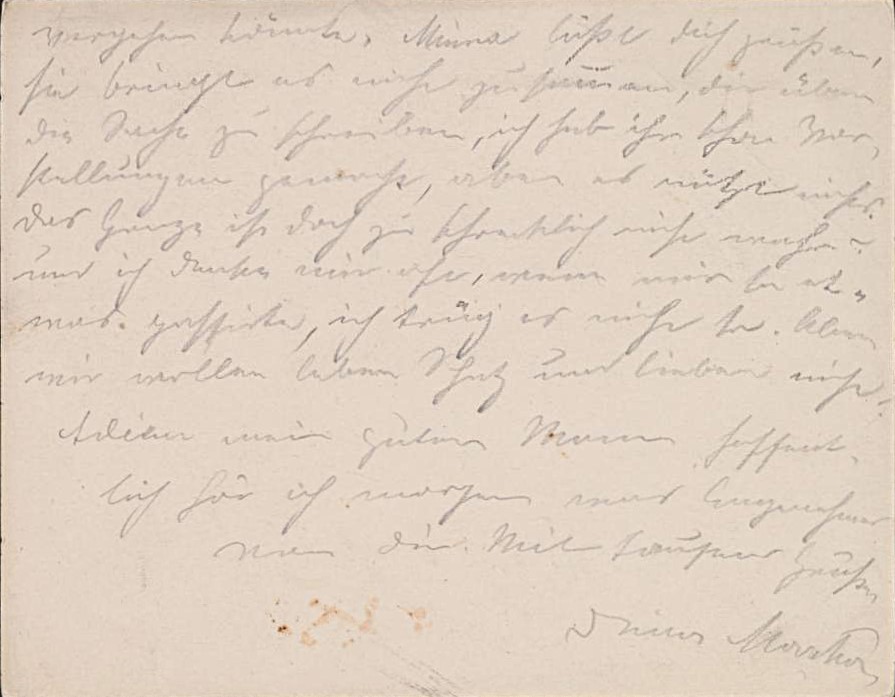 vergehen könnte. Minna läßt dich grüßen,
sie bringt es nicht zusammen, dir über
die Sache zu schreiben, ich hab ihr schon Vor-
stellungen gemacht, aber es nützt nichts.
das Ganze ist doch zu schrecklich nicht wahr?
und ich denke mir oft, wenn mir so et-
was passirte, ich trüg es nicht so. Aber
wir wollen leben Schatz und lieben nicht?
Adieu mein guter Mann hoffent-
lich hör ich morgen was Angenehmes
von dir. Mit tausend Grüßen
Deine Martha